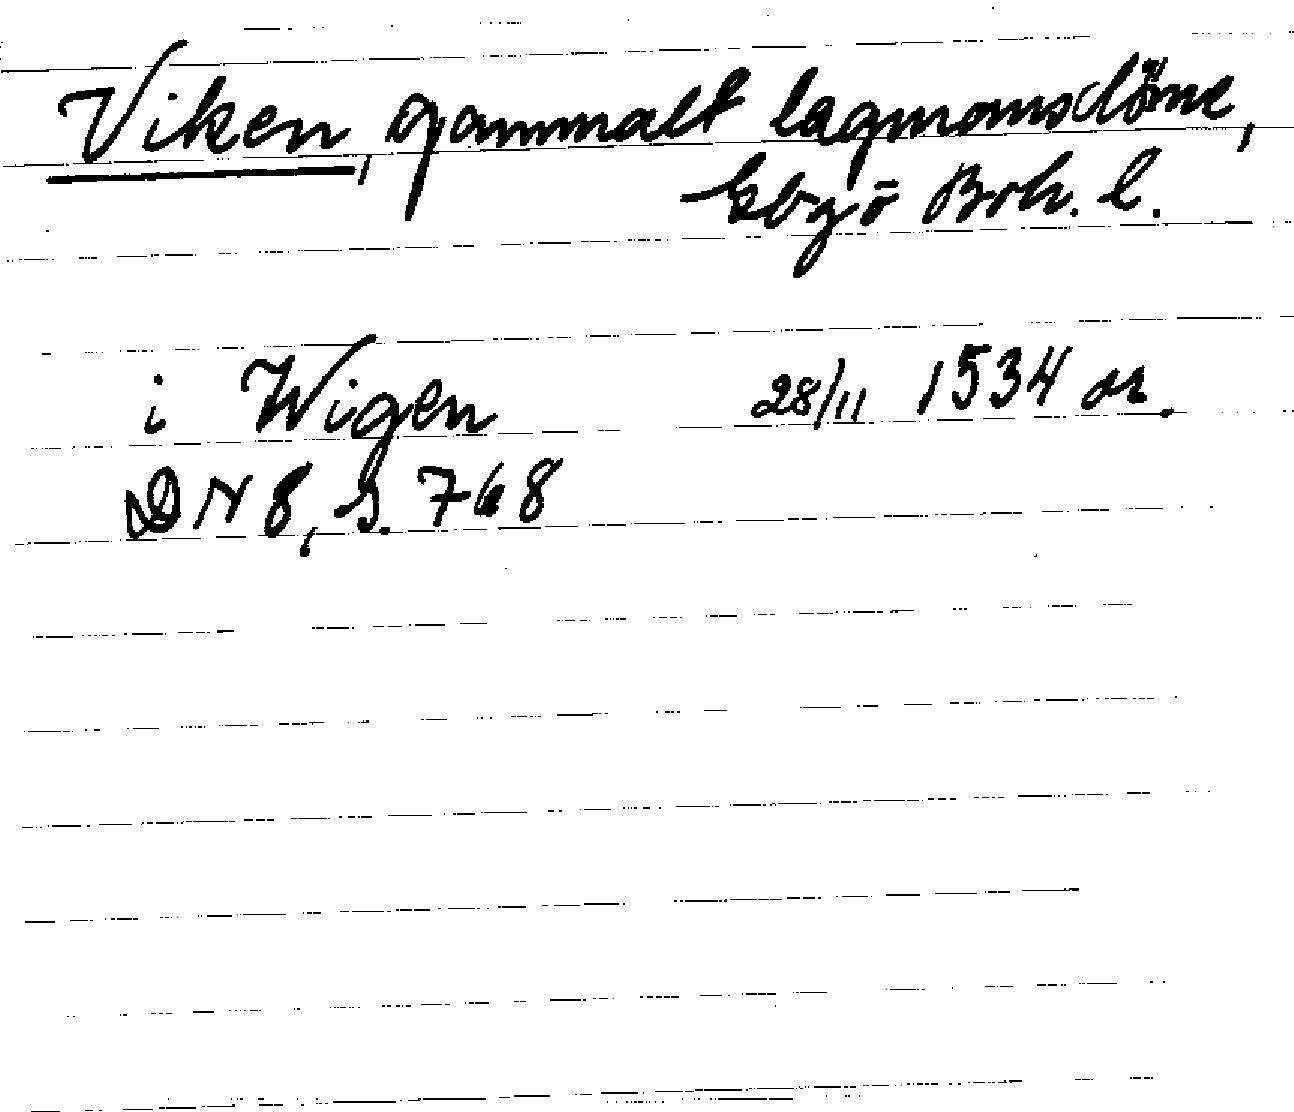 Viken, gammalt lagmansdöme,
Gbgō Boh. l.
i Wigen 28/11 1534 or.
DN 8, s. 768